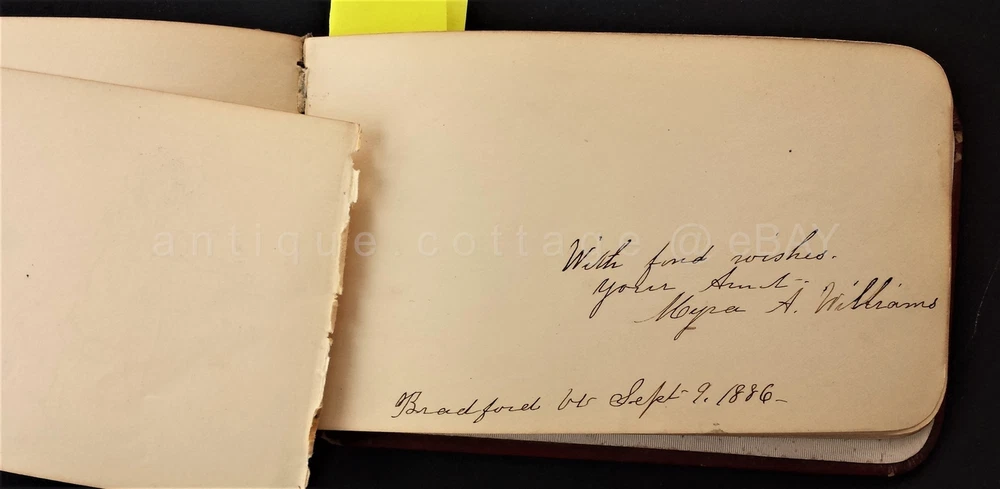 With fond wishes.
your Aunt-
Myra A. Williams
Bradford Vt Sept 9. 1886-
antique cottage @ eBAY